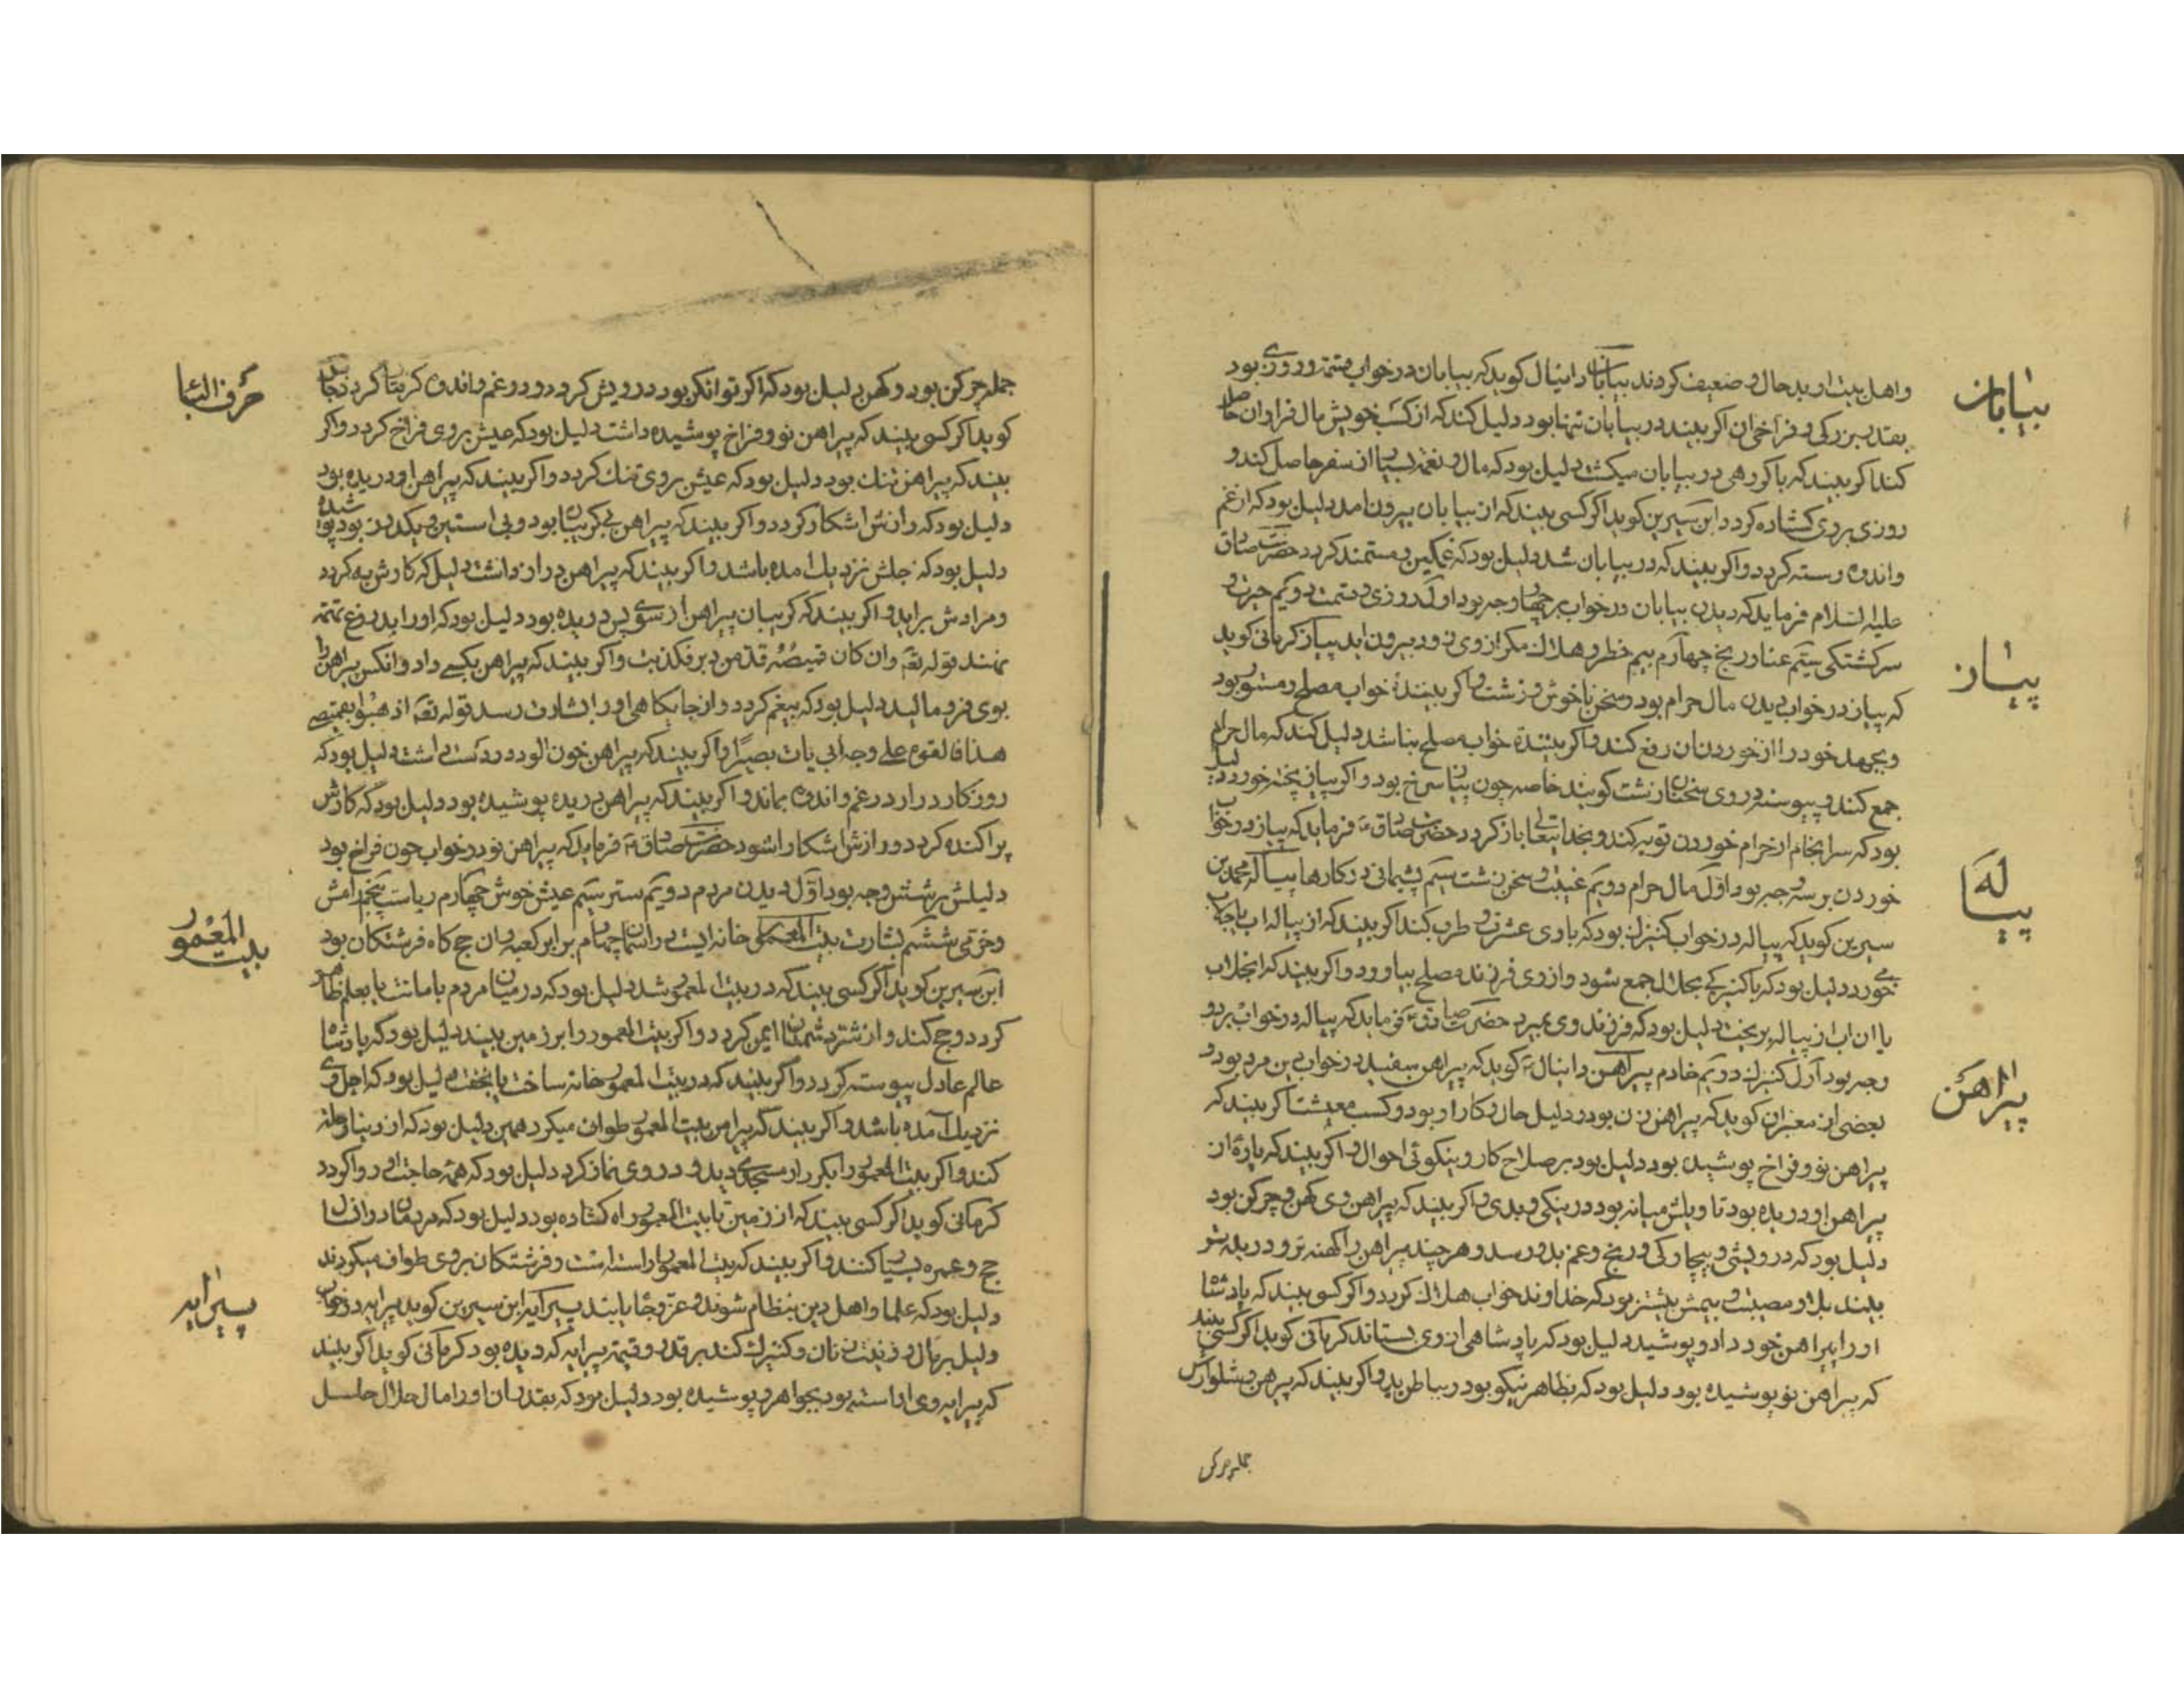 بیابان
واهل بیت او بدحال و ضعیف کردند بیابان دانیال کوید که بیابان در خواب و روزی بود
بقدر بزرکی و فراخی ان اکر بیند در بیابان تنها بود دلیل کند که از کسب خویش مال فراوان حاصل
کند اکر بیند که با کروهی در بیابان میکشت دلیل بود که مال و نعمة بسیار از سفر حاصل کند و
روزی بروی کشاده کردد ابن سیرین کوید اکر کسی بیند که از بیابان بیرون امد دلیل بود که از غم
واندوه رسته کردد واکر بیند که در بیابان شد دلیل بود که غمکین و مستمند کردد حضرت صادق
علیه السلام فرماید که دیدن بیابان در خواب بر چهار وجه بود اول روزی دویم حیرت و
سرکشتکی سیم عنا و رنج چهارم بیم خطر و هلاک مکر از وی زود بیرون اید پیاز کرمانی کوید
پیاز
که پیاز در خواب دیدن مال حرام بود و سخن ناخوش و زشت و اکر بینندهٔ خواب مصلح و مستور بود
وبجهد خود را از خوردن ان رفع کند واکر بینندهٔ خواب مصلح نباشد دلیل کند که مال حرام
جمع کند و پیوسته در روی سخنان زشت کویند خاصه چون پیاز سرخ بود واکر پیاز پخته خورد دلیل
بود که سرانجام از حرام خوردن توبه کند و بخدایتعالی باز کردد حضرت صادق ع فرماید که پیاز در خواب
خوردن بر سه وجه بود اول مال حرام دویم غیبت و سخن زشت سیم پشیمانی در کارها پیاله محمد بن
پیاله
سیرین کوید که پیاله در خواب کنیزک بود که با وی عشرت و طرب کند اکر بیند که از پیاله اب یا جلاب
می خورد دلیل بود که با کنیزکی بحلال جمع شود و از وی فرزند مصلح بیاورد واکر بیند که ان جلاب
یا ان اب از پیاله بریخت دلیل بود که فرزند وی بمیرد حضرت صادق ع فرماید که پیاله در خواب بر دو
وجه بود اول کنیزک دویم خادم پیراهن دانیال ع کوید که پیراهن سفید در خواب دین مرد بود و
پیراهن
بعضی از معبران کوید که پیراهن زن بود و دلیل حال و کار او بود و کسب معیشت اکر بیند که
پیراهن نو و فراخ پوشیده بود دلیل بود بر صلاح کار و نیکوئی احوال و اکر بیند که پارهٔ از
پیراهن او دریده بود تاویلش میانه بود در نیکی و بدی واکر بیند که پیراهن وی کهن و چرکن بود
دلیل بود که درویشی و بیچارکی و رنج و غم بدو رسد و هر چند پیراهن را کهنه تر و دریده تر
بیند بلا و مصیبت و بیمش بیشتر بود که خداوند خواب هلاک کردد واکر کسی بیند که پادشاه
او را پیراهن خود داد و پوشید دلیل بود که پادشاهی از وی بستاند کرمانی کوید اکر کسی بیند
که پیراهن نو پوشیده بود دلیل بود که بظاهر نیکو بود و بباطن بد واکر بیند که پیرهن و شلوارش
جمله چرکن
حرف البا
جمله چرکن بود و کهن دلیل بود که اکر توانکر بود درویش کردد و در غم و اندوه کرفتار کردد
کوید اکر کسی بیند که پیراهن نو و فراخ پوشیده داشت دلیل بود که عیش بر وی فراخ کردد واکر
بیند که پیراهن تنک بود دلیل بود که عیش بر وی تنک کردد واکر بیند که پیراهن او دریده بود
دلیل بود که رازش اشکار کردد واکر بیند که پیراهن بی کریبان بود و بی استین
دلیل بود که اجلش نزدیک امده باشد واکر بیند که پیراهن دراز داشت دلیل که کارش به کردد
و مرادش براید واکر بیند که کریبان پیراهن از سوی پس دریده بود دلیل بود که او را بدروغ تهمة
نهند قوله تع وان کان قمیصه قد من دبر فکذبت واکر بیند که پیراهن بکسی داد وانکس پیراهن را
بوی فرو مالید دلیل بود که بیغم کردد و از جایکاهی او را بشارت رسد قوله تع اذهبوا بقمیصی
هذا فالقوه علی وجه ابی یات بصیرا واکر بیند که پیراهن خون الود در دست داشت دلیل بود که
روزکار دراز در غم و اندوه بماند واکر بیند که پیراهن دریده پوشیده بود دلیل بود که کارش
پراکنده کردد و رازش اشکارا شود حضرت صادق ع فرماید که پیراهن نو در خواب چون فراخ بود
دلیلش بر شش وجه بود اول دیدن مردم دویم ستر سیم عیش خوش چهارم ریاست پنجم رامش
وخرمی ششم بشارت بیت المعمور خانه ایست در اسمان چهارم برابر کعبه و ان حج کاه فرشتکان بود
بیت المعمور
ابن سیرین کوید اکر کسی بیند که در بیت المعمور شد دلیل بود که در میان مردم بامانت یا بعلم ظاهر
کردد و حج کند و از شر دشمنان ایمن کردد واکر بیت المعمور را بر زمین بیند دلیل بود که پادشاه
عالم عادل پیوسته کردد واکر بیند که در بیت المعمور خانه ساخت یا بخفت دلیل بود که اجل وی
نزدیک آمده باشد واکر بیند که پیرامن بیت المعمور طواف میکرد همین دلیل بود که از دنیا
کند واکر بیت المعمور را بکردار مسجدی دید و در وی نماز کرد دلیل بود که همه حاجت او روا کردد
کرمانی کوید اکر کسی بیند که از زمین تا بیت المعمور راه کشاده بود دلیل بود که مردمان
حج وعمره بسیار کنند واکر بیند که بیت المعمور اراسته است و فرشتکان بر وی طواف میکردند
دلیل بود که علما و اهل دین بنظام شوند و عز و جاه یابند پیرایه ابن سیرین کوید پیرایه در خواب
پیرایه
دلیل بر مال و زینت زنان و کنیزک کند بر قدر و قیمة پیرایه که دیده بود کرمانی کوید اکر بیند
که پیرایه وی اراسته بود بجواهر و پوشیده بود دلیل بود که بقدر ان او را مال حلال حاصل